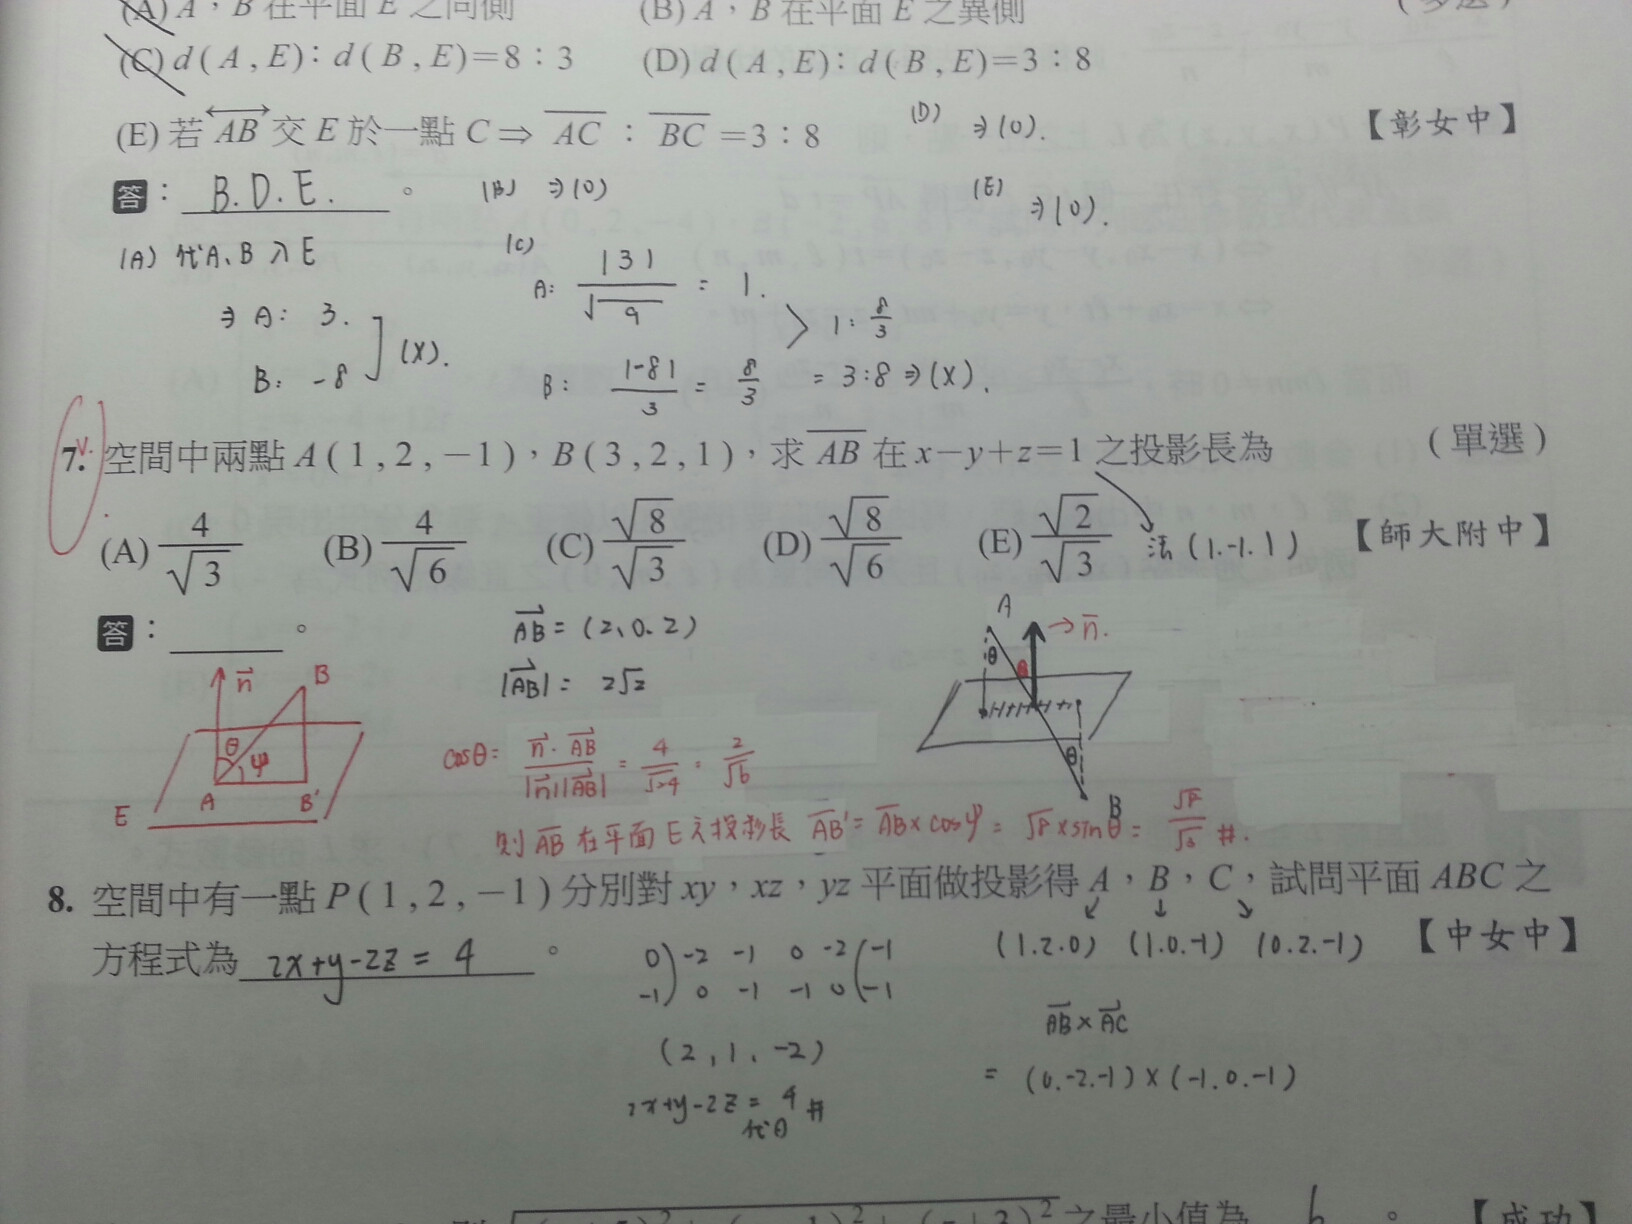 (A) A,B在平面E之同側 (B) A,B在平面E之異側 (多選)
(C) d(A,E):d(B,E)=8:3 (D) d(A,E):d(B,E)=3:8
(E) 若 AB 交 E 於一點 C⇒ AC : BC =3:8 【彰女中】
(D) ⇒(O).
答: B.D.E. 。 (B) ⇒(O) (E) ⇒(O).
(A) 代A、B入E
⇒ A: 3.
B: -8 ](X).
(C)
A: |3|/√9 = 1.
B: |-8|/3 = 8/3
> 1:8/3
= 3:8 ⇒(X).
7. 空間中兩點 A(1,2,−1),B(3,2,1),求 AB 在 x−y+z=1 之投影長為 (單選)
(A) 4/√3 (B) 4/√6 (C) √8/√3 (D) √8/√6 (E) √2/√3 法(1.-1.1) 【師大附中】
答: 。
AB = (2、0.2)
|AB| = 2√2
n B θ φ A B' E
A → n. θ θ θ B
cosθ = n·AB/|n||AB| = 4/√24 = 2/√6
則 AB 在平面 E之投影長 AB' = AB×cosφ = √8×sinθ = √8/√3 #.
8. 空間中有一點 P(1,2,−1)分別對 xy,xz,yz 平面做投影得 A,B,C,試問平面 ABC 之
方程式為 2x+y-2z = 4 。 【中女中】
(1.2.0) (1.0.-1) (0.2.-1)
0) -2 -1 0 -2 (-1
-1) 0 -1 -1 0 (-1
(2,1、-2)
2x+y-2z = 4 #
AB × AC
= (0.-2.-1)×(-1.0.-1)
之最小值為 。 【成功】